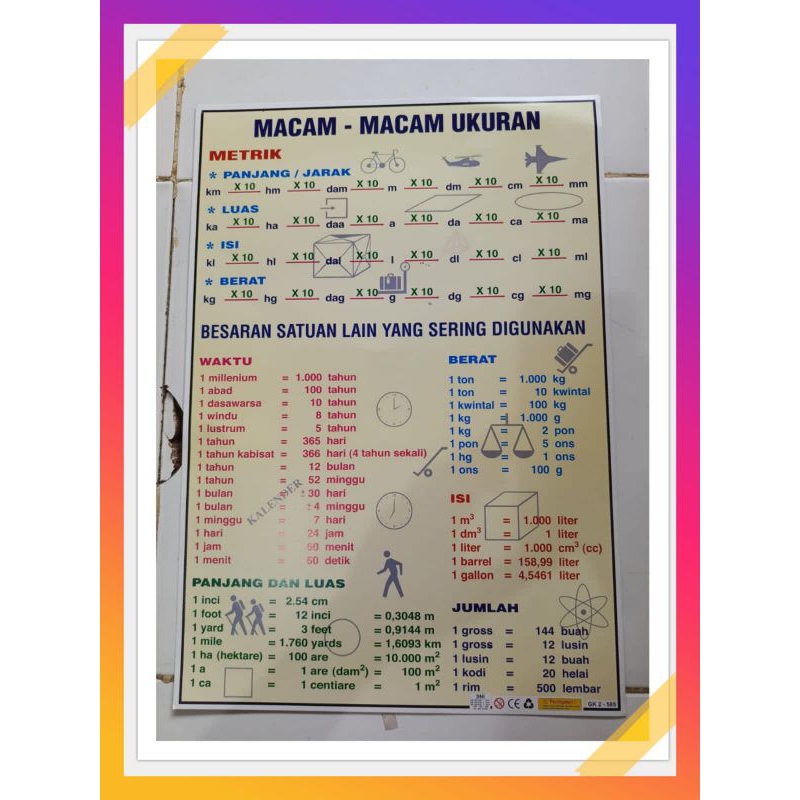 MACAM - MACAM UKURAN
METRIK
* PANJANG / JARAK
km X 10 hm X 10 dam X 10 m X 10 dm X 10 cm X 10 mm
* LUAS
ka X 10 ha X 10 daa X 10 a X 10 da X 10 ca X 10 ma
* ISI
kl X 10 hl X 10 dal X 10 l X 10 dl X 10 cl X 10 ml
* BERAT
kg X 10 hg X 10 dag X 10 g X 10 dg X 10 cg X 10 mg
BESARAN SATUAN LAIN YANG SERING DIGUNAKAN
WAKTU
1 millenium = 1.000 tahun
1 abad = 100 tahun
1 dasawarsa = 10 tahun
1 windu = 8 tahun
1 lustrum = 5 tahun
1 tahun = 365 hari
1 tahun kabisat = 366 hari (4 tahun sekali)
1 tahun = 12 bulan
1 tahun = 52 minggu
1 bulan = ±30 hari
1 bulan = ±4 minggu
1 minggu = 7 hari
1 hari = 24 jam
1 jam = 60 menit
1 menit = 60 detik
KALENDER
BERAT
1 ton = 1.000 kg
1 ton = 10 kwintal
1 kwintal = 100 kg
1 kg = 1.000 g
1 kg = 2 pon
1 pon = 5 ons
1 hg = 1 ons
1 ons = 100 g
ISI
1 m³ = 1.000 liter
1 dm³ = 1 liter
1 liter = 1.000 cm³ (cc)
1 barrel = 158,99 liter
1 gallon = 4,5461 liter
PANJANG DAN LUAS
1 inci = 2.54 cm
1 foot = 12 inci = 0,3048 m
1 yard = 3 feet = 0,9144 m
1 mile = 1.760 yards = 1,6093 km
1 ha (hektare) = 100 are = 10.000 m²
1 a = 1 are (dam²) = 100 m²
1 ca = 1 centiare = 1 m²
JUMLAH
1 gross = 144 buah
1 gross = 12 lusin
1 lusin = 12 buah
1 kodi = 20 helai
1 rim = 500 lembar
GK 2 - 585